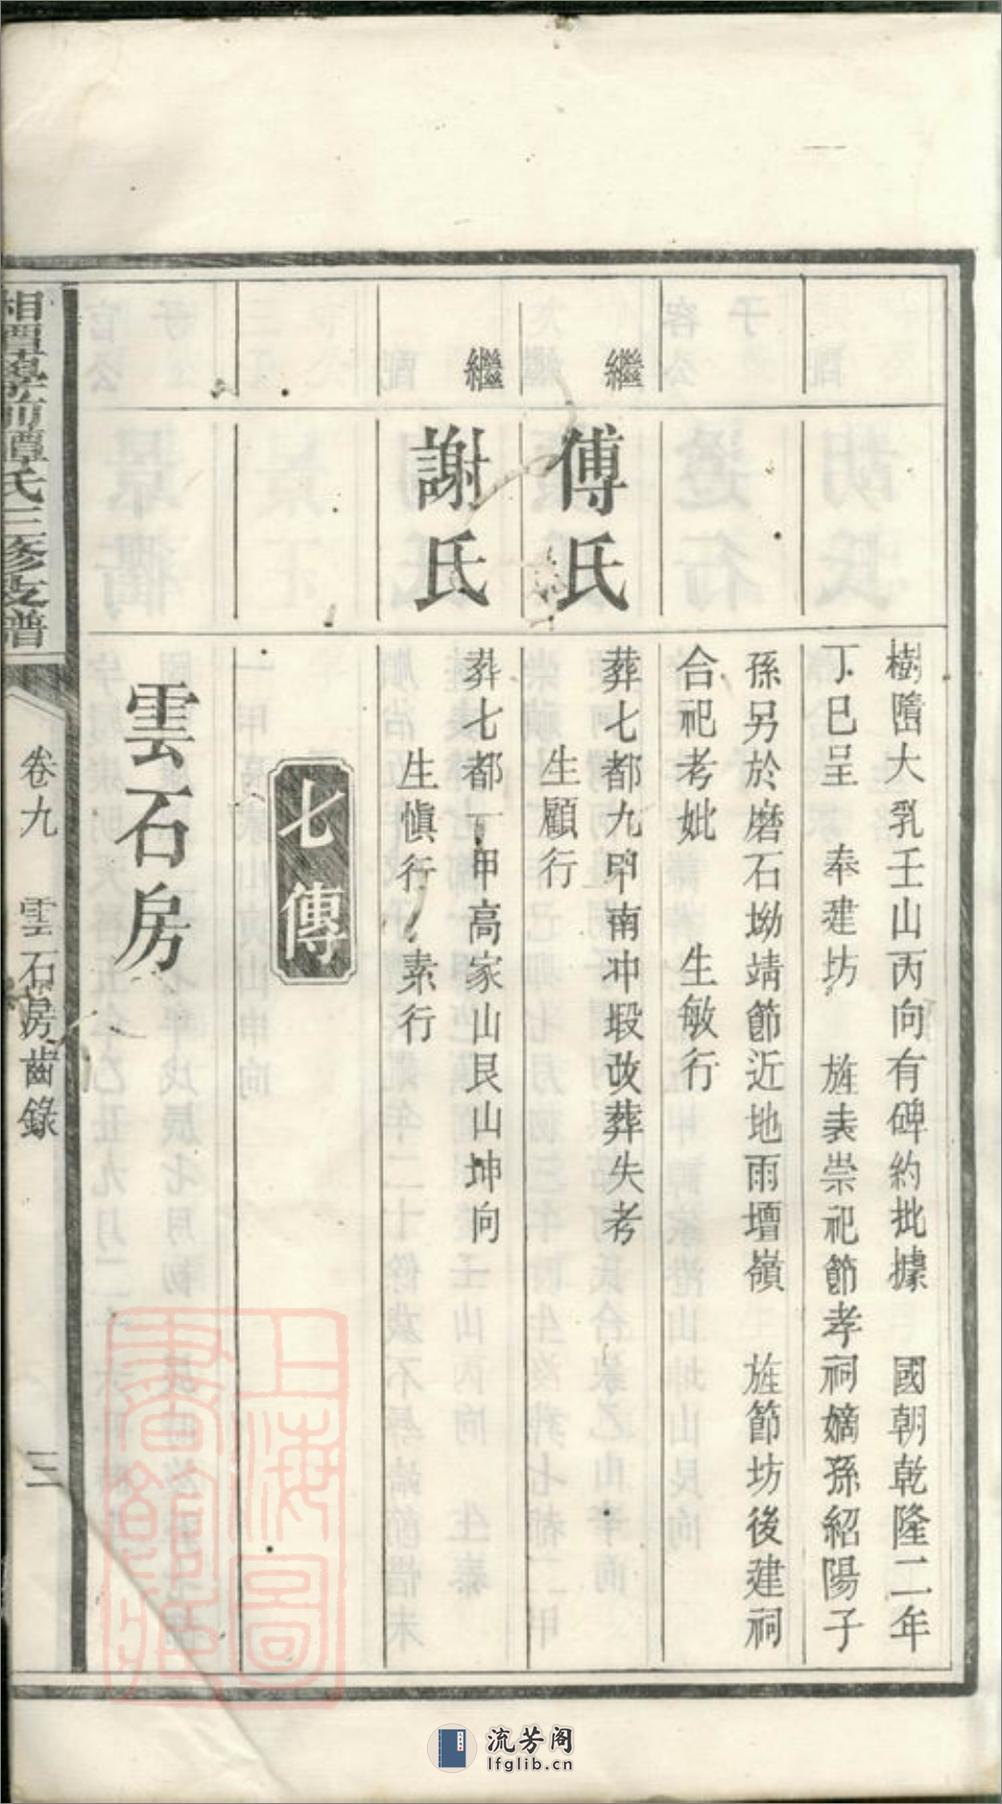 樹隮大乳壬山丙向有碑約批據　國朝乾隆二年
丁巳呈　奉建坊　旌表崇祀節孝祠嫡孫紹陽子
孫另於磨石坳靖節近地雨壇嶺　旌節坊後建祠
合祀考妣　生敏行
繼
傅氏
葬七都九甲南冲塅改葬失考
生顧行
繼
謝氏
葬七都一甲高家山艮山坤向
生愼行　素行
七傳
雲石房
湘潭學前譚氏三修支譜
卷九　雲石房齒錄
三
上海圖書館藏
流芳阁
lfglib.cn